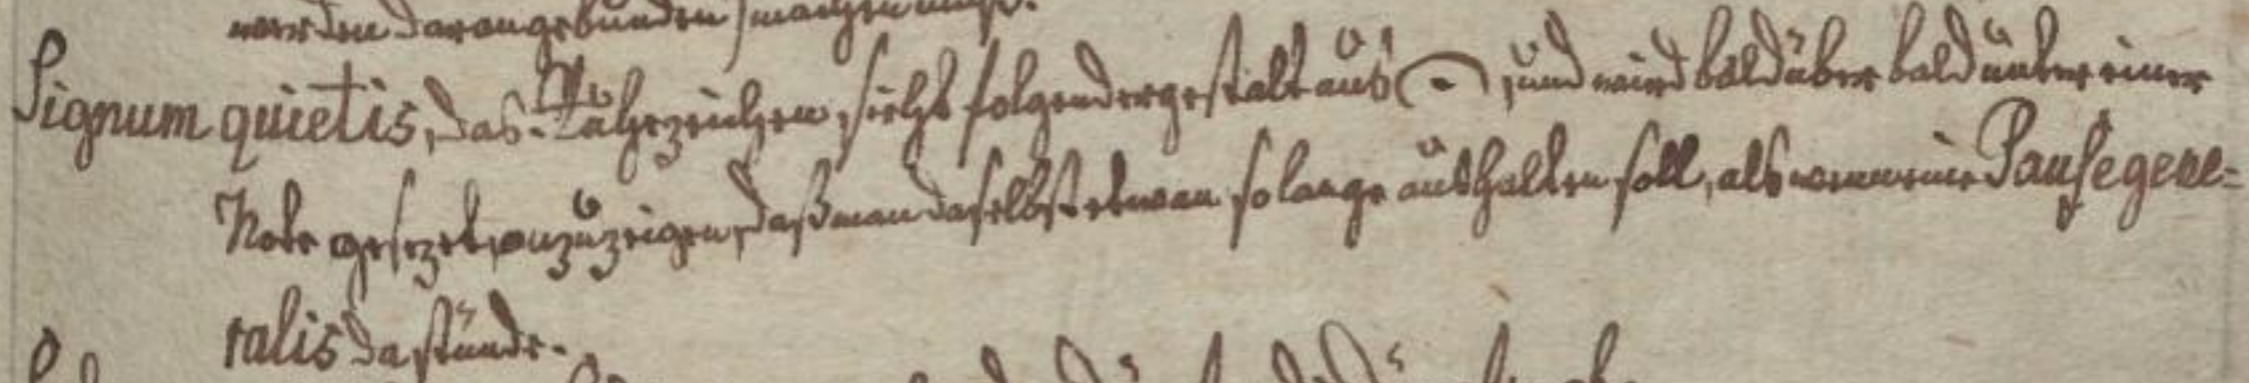 werden darangebunden machen muß.
Signum quietis, das Ruhezeichen, sieht folgendergestalt aus 𝄐, und wird bald über bald unter einer
Note gesezet, anzuzeigen, daß man daselbst etwan so lange aushalten soll, als wenn eine Pause gene-
ralis da stünde.